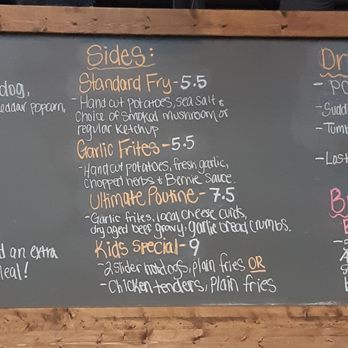 Sides:
Standard Fry - 5.5
- Hand cut potatoes, sea salt &
choice of smoked mushroom or
regular ketchup
Garlic Frites - 5.5
- Hand cut potatoes, fresh garlic,
chopped herbs & Bernie sauce
Ultimate Poutine - 7.5
- Garlic frites, local cheese curds,
dry aged beef gravy, garlic bread crumbs.
Kids Special - 9
- 2 slider hotdogs, plain fries OR
- Chicken tenders, plain fries
dog,
eddar popcorn,
d an extra
eal!
Dr
- Po
- Sudd
- Tumb
- Last